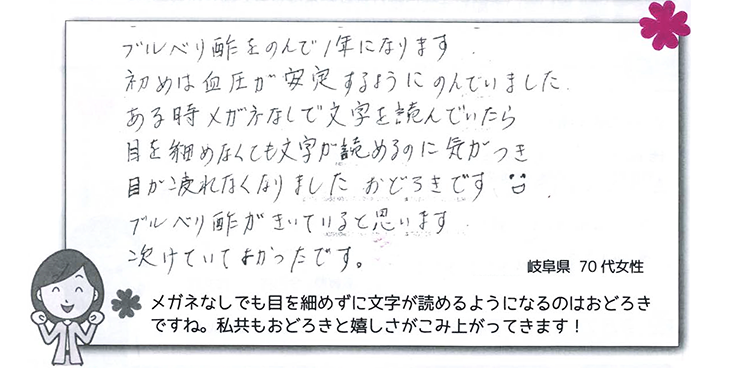 ブルベリ酢をのんで1年になります
初めは血圧が安定するようにのんでいました
ある時メガネなしで文字を読んでいたら
目を細めなくても文字が読めるのに気がつき
目が疲れなくなりました おどろきです
ブルベリ酢がきいていると思います
次けていてよかったです。
岐阜県 70代女性
メガネなしでも目を細めずに文字が読めるようになるのはおどろき
ですね。私共もおどろきと嬉しさがこみ上がってきます！